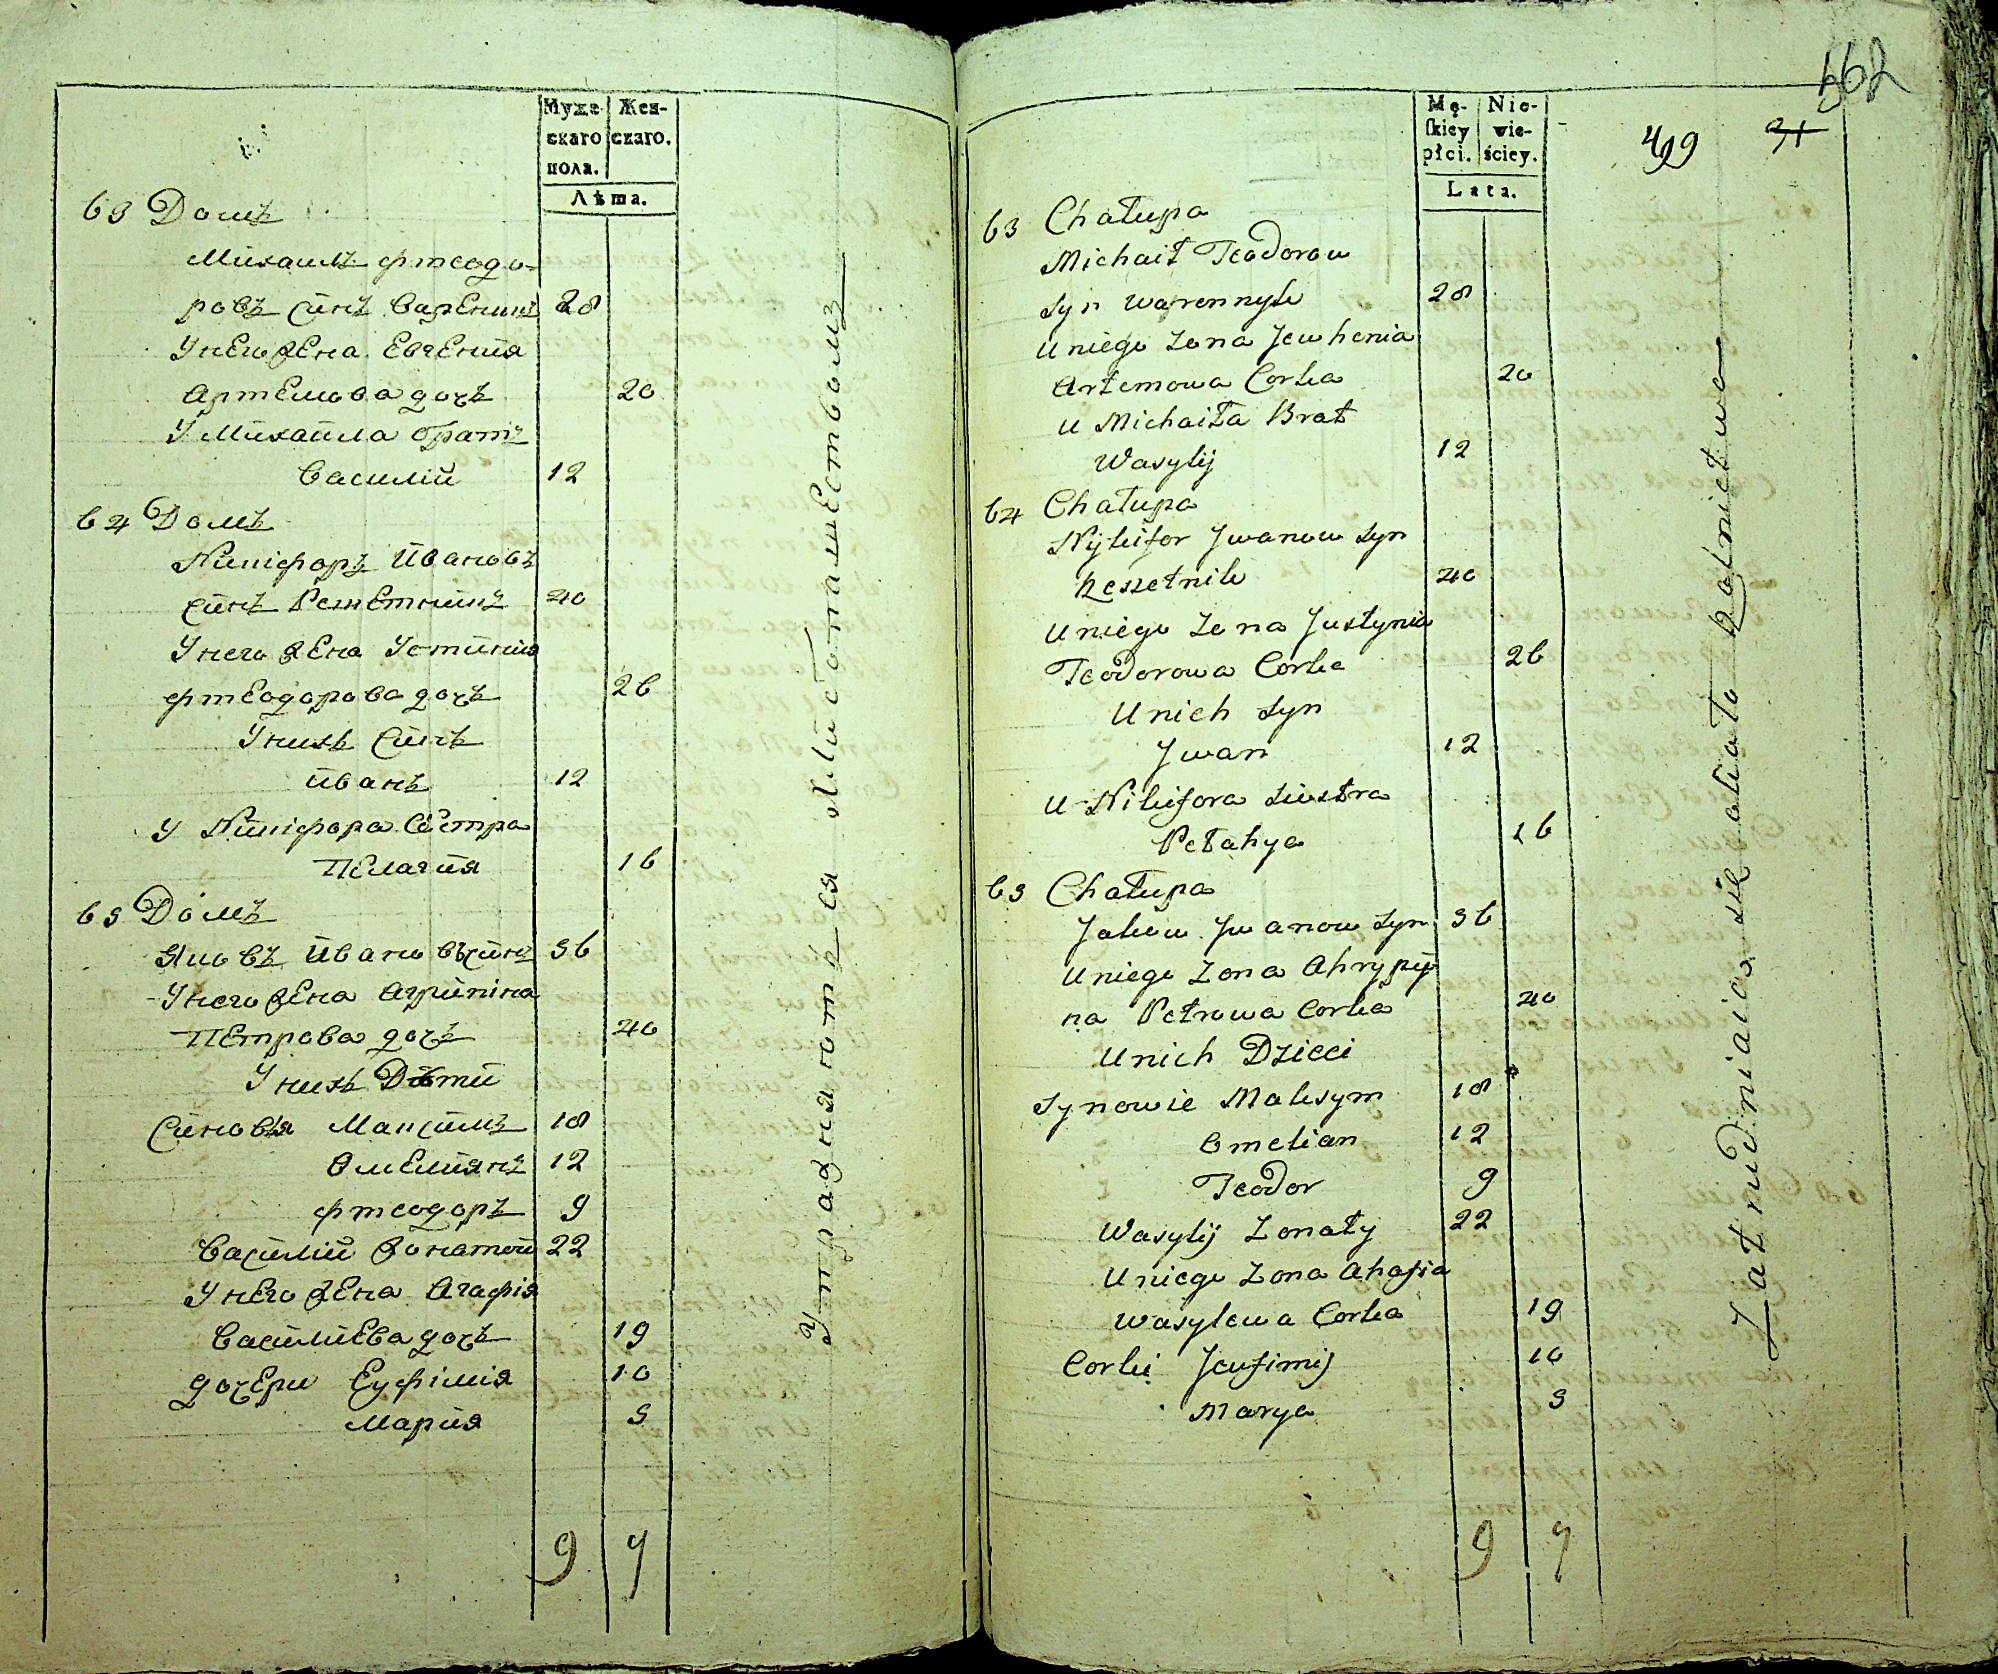 Муже- Жен-
скаго скаго.
пола.
Лѣта.
63 Домъ
Михаилъ Фтеодо-
ровъ Синъ Вареникъ 28
У него Жена Евгения
Артемова дочь 20
У Михайла братъ
Василій 12
64 Домъ
Никифоръ Ивановъ
Синъ Решетникъ 40
У него Жена Устиния
Фтеодорова дочь 26
У нихъ Синъ
Иванъ 12
У Никифора Сестра
Пелагия 16
65 Домъ
Яковъ Ивановъ Синъ 56
У него Жена Агрипина
Петрова дочь 40
У нихъ Дѣти
Синовья Максимъ 18
Омелиянъ 12
Фтеодоръ 9
Василий Жонатой 22
У него Жена Агафія
Василиева дочь 19
дочери Еуфімія 10
Мария 5
9 7
Упражняются Хлиботашеством
562
499 31
Mę- Nie-
skiey wie-
płci. ściey.
Lata.
63 Chałupa
Michaił Teodorow
Syn Warennyk 28
U niego Zona Jewhenia
Artemowa Corka 20
U Michaiła Brat
Wasylij 12
64 Chałupa
Nykifor Jwanow Syn
Reszetnik 40
U niego Zona Justynia
Teodorowa Corka 26
U nich Syn
Jwan 12
U Nikifora Siostra
Pełahya 16
65 Chałupa
Jakow Jwanow Syn 56
U niego Zona Ahrypij
na Petrowa Corka 40
U nich Dzieci
Synowie Maksym 18
Omelian 12
Teodor 9
Wasylij Zonaty 22
U niego Zona Ahafia
Wasylewa Corka 19
Corki Jeufimij 10
Marya 5
9 7
Zatrudniaią się około Rolnictwa